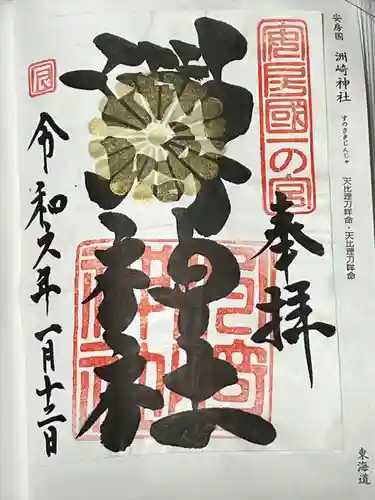 安房国
洲崎神社
すのさきじんじゃ
天比理刀咩命・天比理刀咩命
安房國一の宮
奉拝
洲崎神社
令和六年一月十二日
東海道